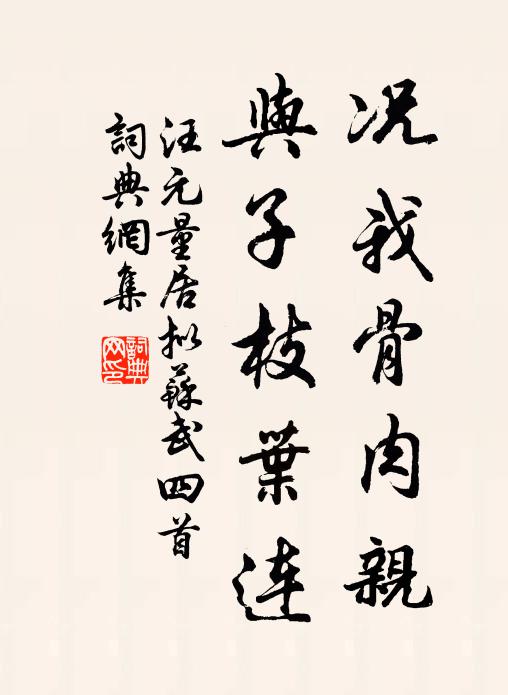 况我骨肉親
與子枝葉連
汪元量居擬蘇武四首
詞典網集
詞典網印